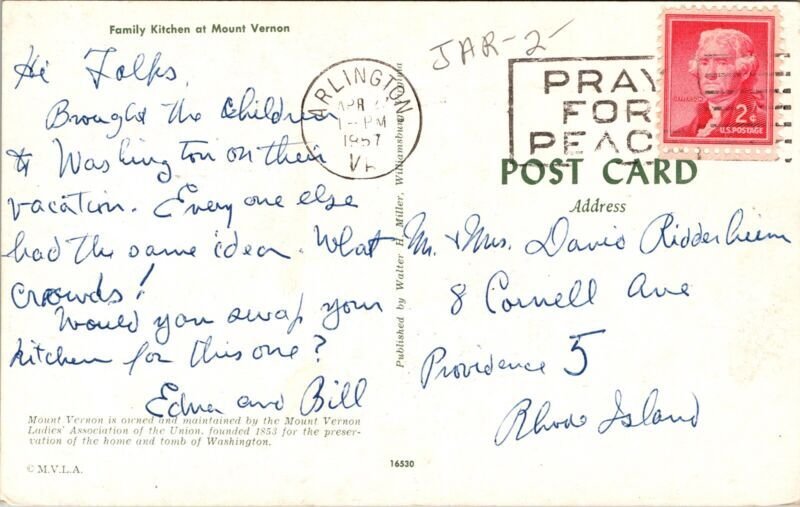 Family Kitchen at Mount Vernon
Hi Folks,
Brought the children
to Washington on their
vacation. Every one else
had the same idea. What
crowds!
Would you swap your
kitchen for this one?
Edna and Bill
Mount Vernon is owned and maintained by the Mount Vernon
Ladies' Association of the Union, founded 1853 for the preser-
vation of the home and tomb of Washington.
© M.V.L.A.
Published by Walter H. Miller, Williamsburg, Virginia
16530
JAR-2-
ARLINGTON
APR
PM
1957
VA
PRAY
FOR
PEACE
2¢
U.S. POSTAGE
POST CARD
Address
Mr. & Mrs. David Ridderheim
8 Cornell Ave
Providence 5
Rhode Island